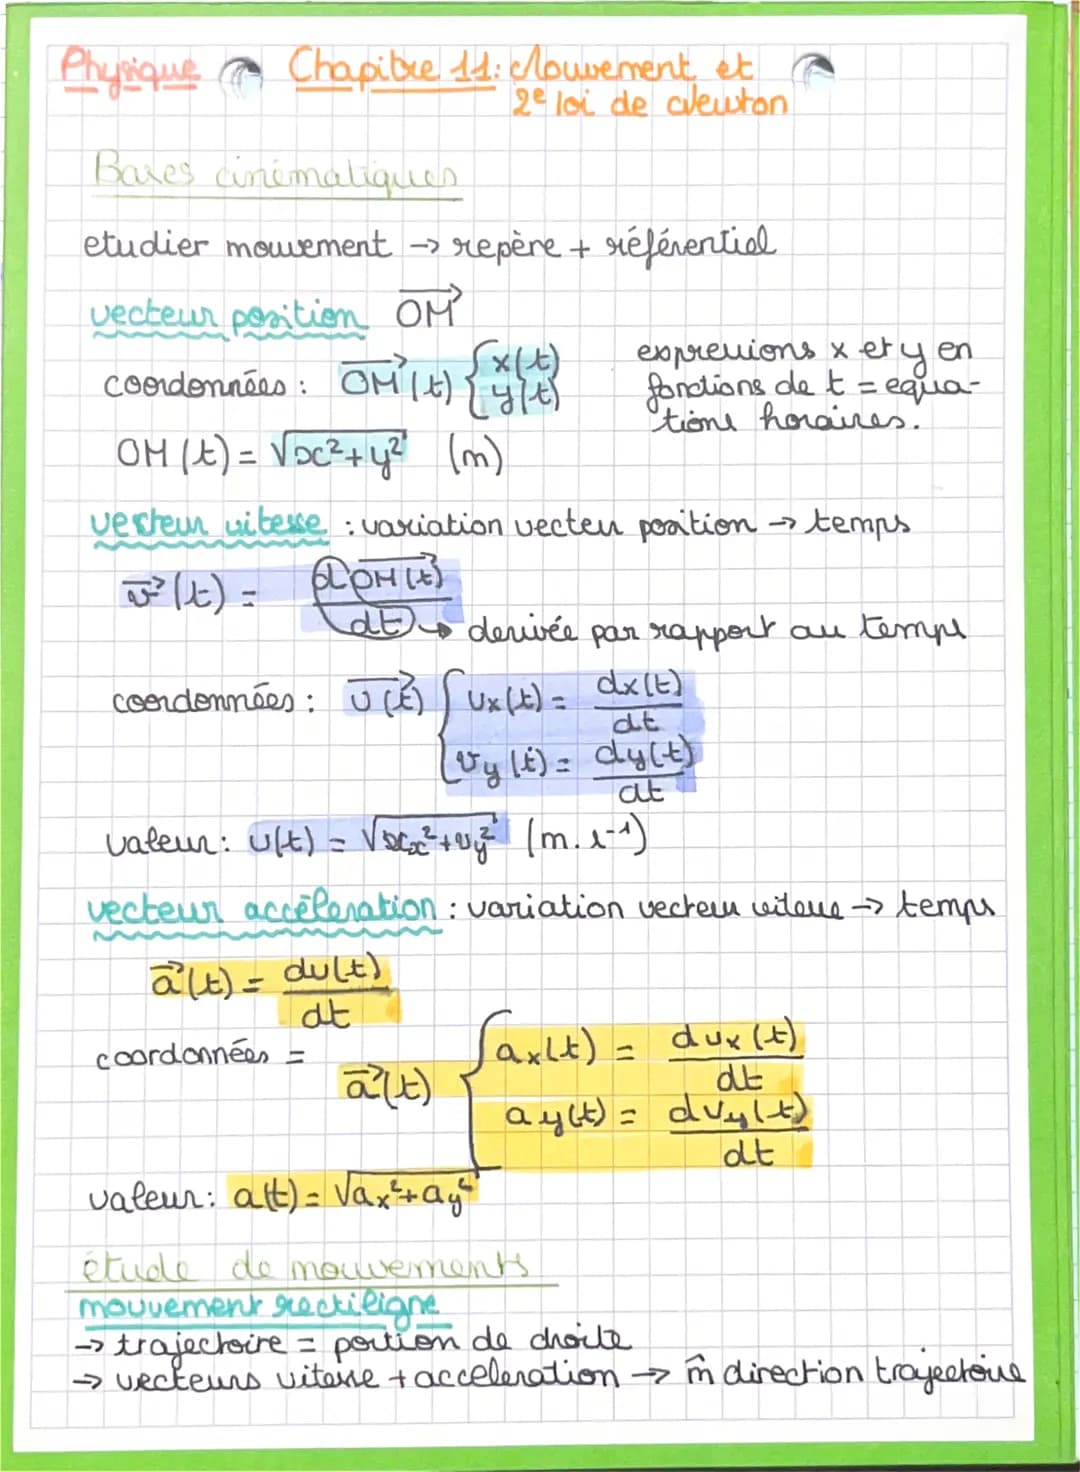 Physique Chapitre 11: Mouvement et
2e loi de Newton
Bases cinématiques
etudier mouvement → repère + référentiel
vecteur position OM⃗
coordonnées : OM⃗(t) { x(t)
y(t)
expressions x et y en
fonctions de t = equa-
tions horaires.
OM(t) = √x²+y² (m)
vecteur vitesse : variation vecteu position → temps
v⃗(t) = dOM⃗(t)
dt → derivée par rapport au temps
coordonnées : v⃗(t) { vx(t) = dx(t)
dt
vy(t) = dy(t)
dt
valeur: v(t) = √xx²+vy² (m.s⁻¹)
vecteur accéleration : variation vecteu vitesse → temps
a⃗(t) = dv(t)
dt
coordonnées =
a⃗(t) { ax(t) = dvx(t)
dt
ay(t) = dvy(t)
dt
valeur: a(t) = √ax²+ay²
étude de mouvements
mouvement rectiligne
→ trajectoire = portion de droite
→ vecteurs vitesse + acceleration → m̂ direction trajectoire